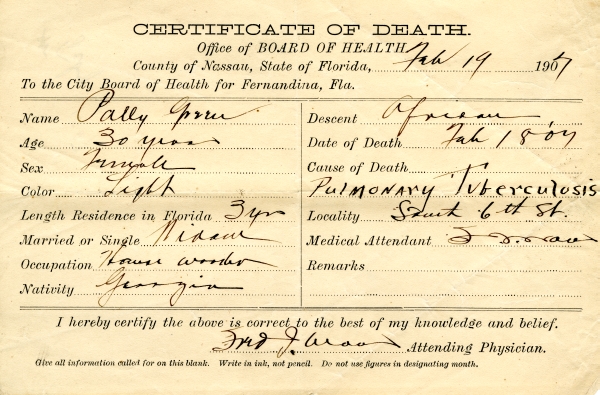 CERTIFICATE OF DEATH.
Office of BOARD OF HEALTH
County of Nassau, State of Florida, Feb 19 1907
To the City Board of Health for Fernandina, Fla.
Name Green
Age 30 years
Sex Female
Color Light
Length Residence in Florida 3 yrs
Married or Single
Occupation House
Nativity Georgia
Descent African
Date of Death Feb 18 '07
Cause of Death
Pulmonary Tuberculosis
Locality South 6th St.
Medical Attendant
Remarks
I hereby certify the above is correct to the best of my knowledge and belief.
Fred J. Attending Physician.
Give all information called for on this blank. Write in ink, not pencil. Do not use figures in designating month.